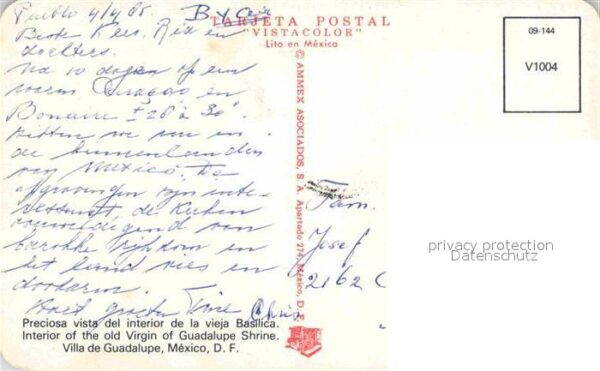 Puebla 4/4 85.
TARJETA POSTAL
"VISTACOLOR"
Lito en México
09-144
V1004
Beste Kers. Ria en
dochters.
Na 10 dagen op een
warm Curaçao en
Bonaire ± 28 à 30°.
zitten we nu in
de binnenlanden
van Mexico. De
opgravingen zijn inte-
ressant, de Kerken
overweldigend van
barokke rijkdom en
het land vies en
dootarm.
Hart. groeten Tine Chris
© AMMEX ASOCIADOS, S. A. Apartado 274, México, D. F.
Fam.
Josef
2162 C
privacy protection
Datenschutz
Preciosa vista del interior de la vieja Basílica.
Interior of the old Virgin of Guadalupe Shrine.
Villa de Guadalupe, México, D. F.